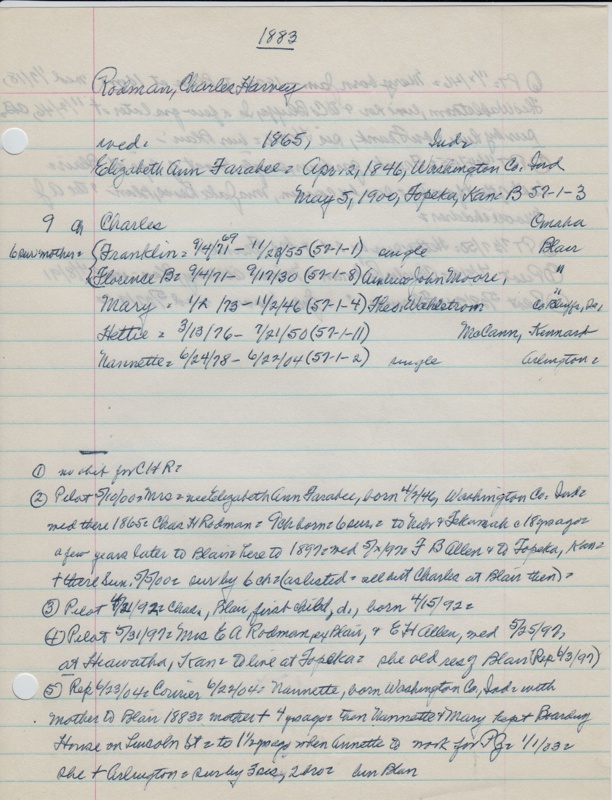 1883
Rodman, Charles Harvey
wed = 1865, Ind =
Elizabeth Ann Farabee = Apr 2, 1846, Washington Co. Ind
May 5, 1900, Topeka, Kan = B 57-1-3
9 ch Charles Omaha
6 sur mother = Franklin = 9/4/71 69 - 11/28/55 (57-1-1) single Blair
Florence B = 9/4/71 - 9/17/30 (57-1-8) John Moore, "
Mary = 1/2 /73 - 11/2/46 (57-1-4) Theo. Wahlstrom Co Bluffs, Ia =
Hettie = 3/13/76 - 7/21/50 (57-1-11) McCann, Kennard
Nannette = 6/24/78 - 6/22/04 (57-1-2) single Arlington =
① no obit for CHR =
② Pilot 5/10/00 = Mrs = nee Elizabeth Ann Farabee, born 4/2/46, Washington Co. Ind =
wed there 1865 = Chas H Rodman = 9 ch born = 6 sur. = to Nebr & Tekamah c 18 yrs ago =
a few years later to Blair = here to 1897 = wed 5/2 /97 = F B Allen & to Topeka, Kan =
+ there Sun. 5/5/00 = sur by 6 ch = (as listed = all but Charles at Blair then) =
③ Pilot 4/21/92 = Chas., Blair, first child, d., born 4/15/92 =
④ Pilot 5/31/97 = Mrs E A Rodman, Blair, & E H Allen, wed 5/25/97,
at Hiawatha, Kan = to live at Topeka = she old res of Blair (Rep 6/3/97)
⑤ Rep 6/23/04 = Courier 6/22/04 = Nannette, born Washington Co, Ind = with
mother to Blair 1883 = mother + 4 yrs ago = then Nannette & Mary kept Boarding
House on Lincoln St = to 1 1/2 yrs ago when Annette to work for = 1/1/03 =
she + Arlington = sur by 3 sis, 2 bro = bur Blair